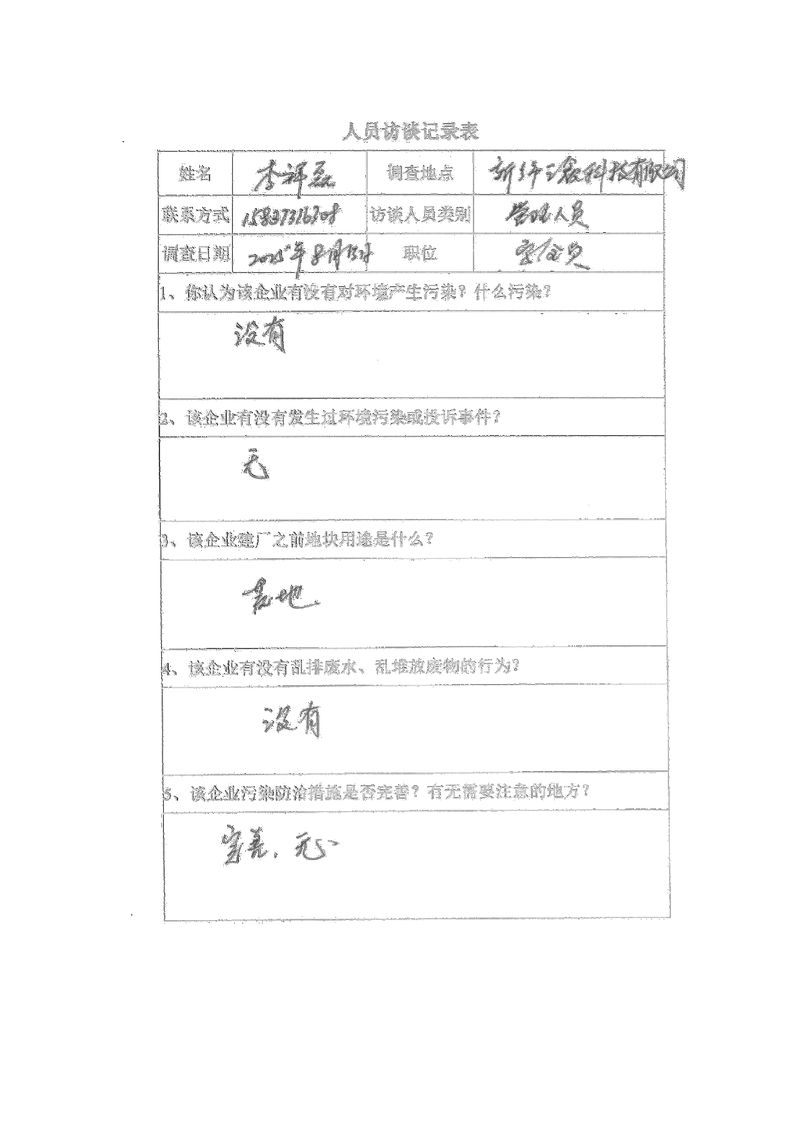 人员访谈记录表
姓名 李祥磊 调查地点 科技有限公司
联系方式 访谈人员类别 管理人员
调查日期 2025年8月15日 职位 安全员
1、你认为该企业有没有对环境产生污染？什么污染？
没有
2、该企业有没有发生过环境污染或投诉事件？
无
3、该企业建厂之前地块用途是什么？
地
4、该企业有没有乱排废水、乱堆放废物的行为？
没有
5、该企业污染防治措施是否完善？有无需要注意的地方？
完善，无。